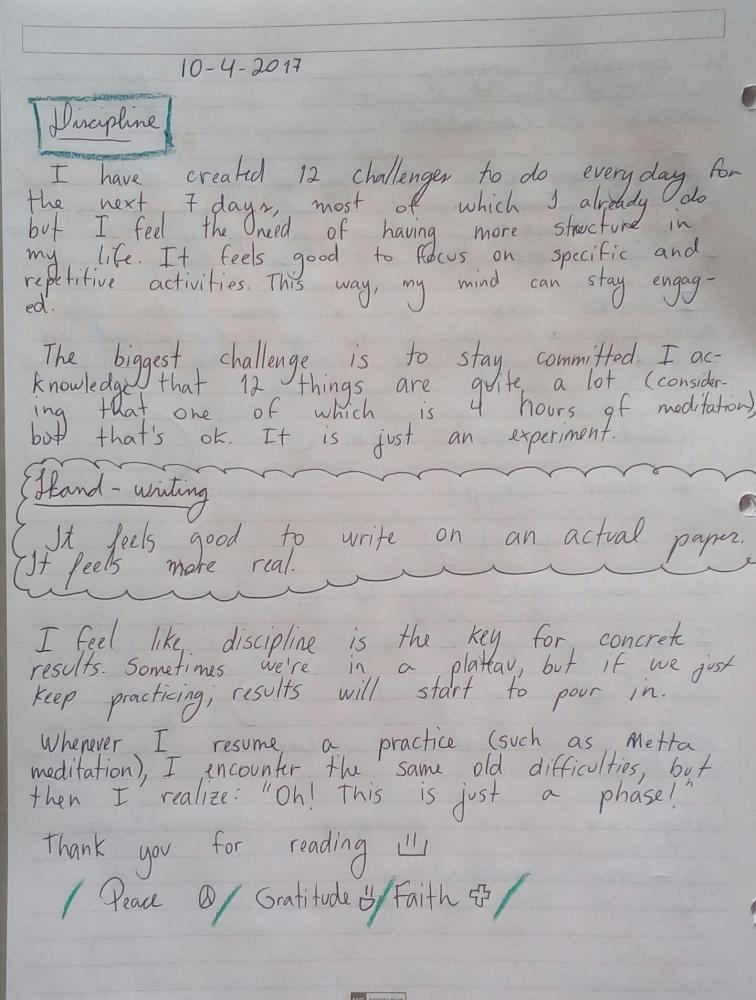 10-4-2017
Discipline
I have created 12 challenges to do everyday for
the next 7 days, most of which I already do
but I feel the need of having more structure in
my life. It feels good to focus on specific and
repetitive activities. This way, my mind can stay engag-
ed.
The biggest challenge is to stay committed. I ac-
knowledge that 12 things are quite a lot (consider-
ing that one of which is 4 hours of meditation),
but that's ok. It is just an experiment.
Hand-writing
It feels good to write on an actual paper.
It feels more real.
I feel like discipline is the key for concrete
results. Sometimes we're in a plateau, but if we just
keep practicing, results will start to pour in.
Whenever I resume a practice (such as Metta
meditation), I encounter the same old difficulties, but
then I realize: "Oh! This is just a phase!"
Thank you for reading
/ Peace ☮ / Gratitude / Faith /